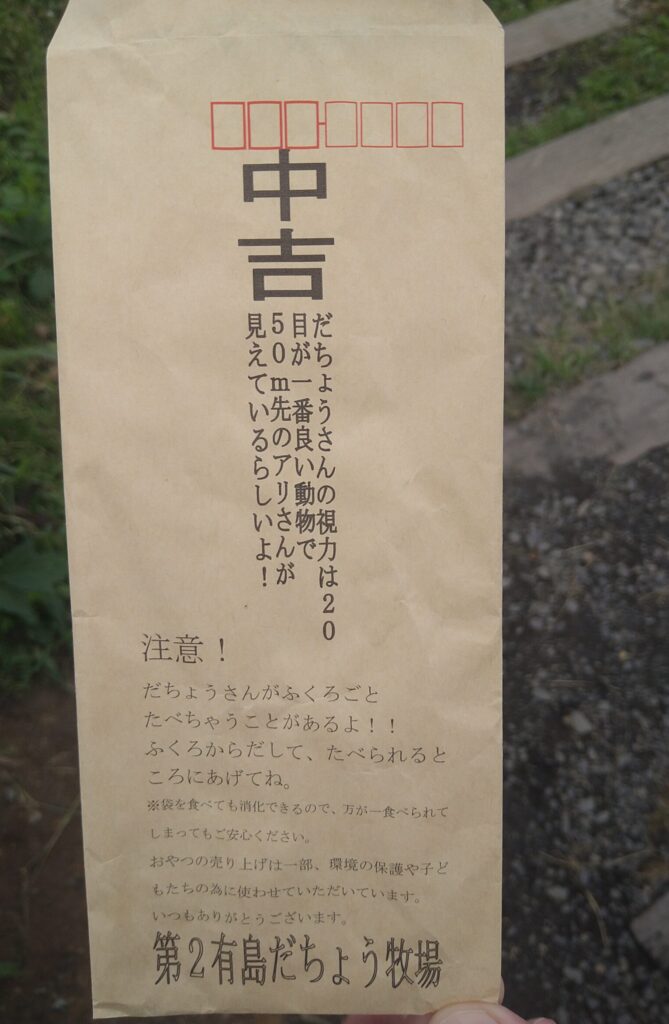 中吉
だちょうさんの視力は20
目が一番良い動物で
50m先のアリさんが
見えているらしいよ！
注意！
だちょうさんがふくろごと
たべちゃうことがあるよ！！
ふくろからだして、たべられると
ころにあげてね。
※袋を食べても消化できるので、万が一食べられて
しまってもご安心ください。
おやつの売り上げは一部、環境の保護や子ど
もたちの為に使わせていただいています。
いつもありがとうございます。
第2有島だちょう牧場